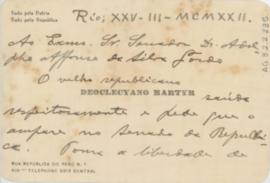 Tudo pela Patria
Tudo pela Republica
Rio, XXV-III-MCMXXII.
Ao Exmo. Sr. Senador Dr. Adol-
pho Affonso da Silva Gordo
O velho republicano
DEOCLECYANO MARTYR
saúda
respeitosamente e pede que o
ampare no Senado da Republi-
ca. Toma a liberdade de
RUA REPUBLICA DO PERÚ N. 1
RIO — TELEPHONE 5018 CENTRAL